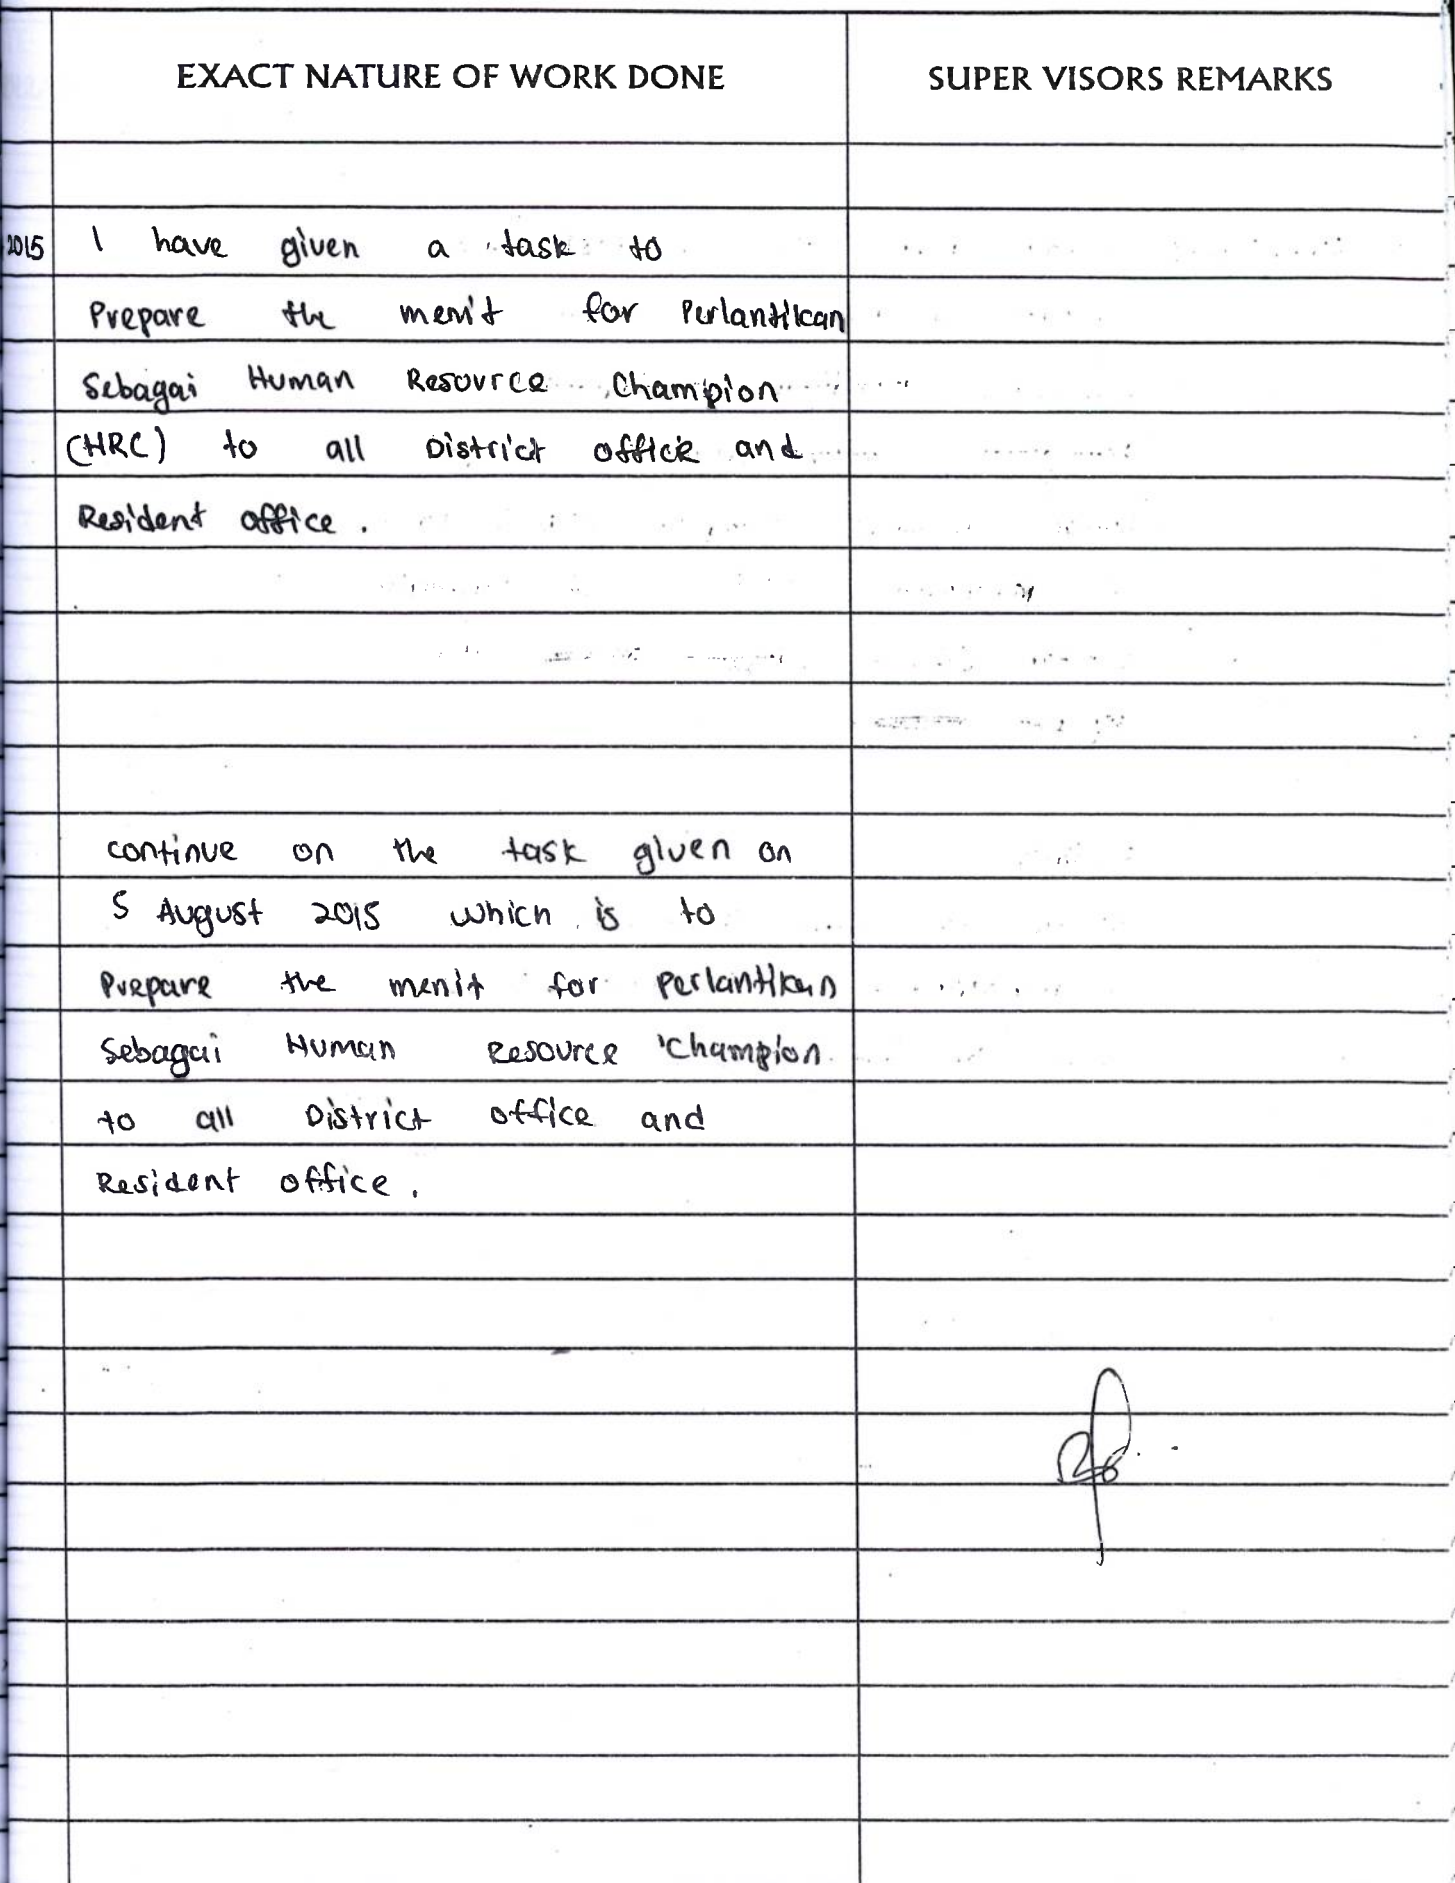 EXACT NATURE OF WORK DONE SUPER VISORS REMARKS
2015 I have given a task to
Prepare the merit for Perlantikan
Sebagai Human Resource Champion
(HRC) to all District office and
Resident office.
continue on the task given on
5 August 2015 which is to
Prepare the merit for Perlantikan
Sebagai Human Resource Champion
to all District office and
Resident office.